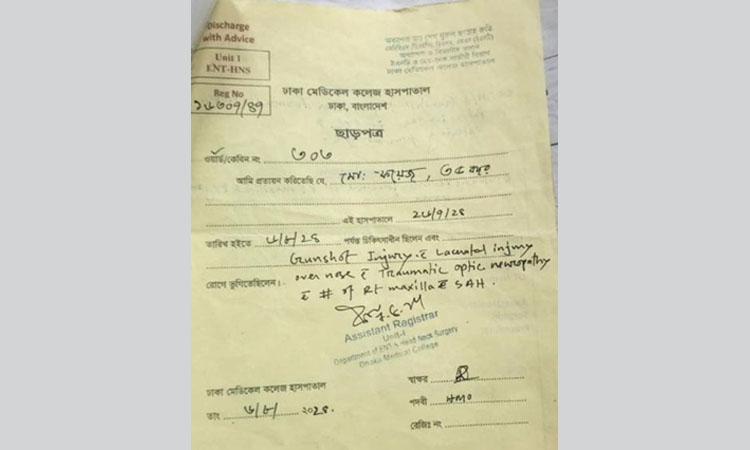 Discharge
with Advice
Unit 1
ENT-HNS
Reg No
ঢাকা মেডিকেল কলেজ হাসপাতাল
ঢাকা, বাংলাদেশ
ছাড়পত্র
ওয়ার্ড/কেবিন নং ৩০৬
আমি প্রত্যয়ন করিতেছি যে, মো: ফয়েজ, ৩৫ বছর
এই হাসপাতালে
তারিখ হইতে ৬/৮/২৪ পর্যন্ত চিকিৎসাধীন ছিলেন এবং
Gunshot Injury c̄ Lacerated injury
over nose c̄ Traumatic optic neuropathy
রোগে ভুগিতেছিলেন।
c̄ # of Rt maxilla c̄ SAH.
Assistant Registrar
Unit-I
Department of ENT & Head Neck Surgery
Dhaka Medical College
ঢাকা মেডিকেল কলেজ হাসপাতাল
স্বাক্ষর
তাং ৬/৮/২০২৪.
পদবী HMO
রেজিঃ নং